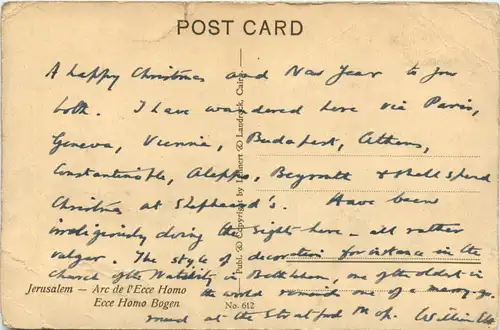 POST CARD
A happy Christmas and New Year to you
both. I have wandered here via Paris,
Geneva, Vienna, Budapest, Athens,
Constantinople, Aleppo, Beyrouth & shall spend
Christmas at Shepheard's. Have been
irreligiously doing the sights here – all rather
vulgar. The style of decoration for instance in the
Church of the Nativity in Bethlehem, one of the oldest in
the world reminds one of a merry-go-
round at the Stratford Mop. William
Jerusalem — Arc de l'Ecce Homo
Ecce Homo Bogen
No. 612
Publ. & Copyright by Lehnert & Landrock, Cairo